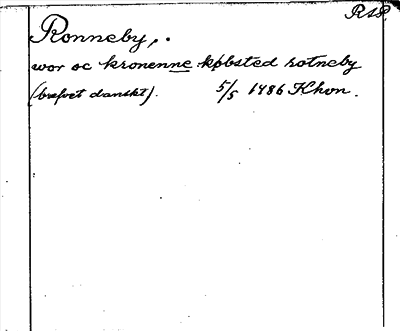 RAP.
Ronneby,.
wor oc kronenne købsted rotneby
(brefvet danskt). 5/5 1486 Khvn.